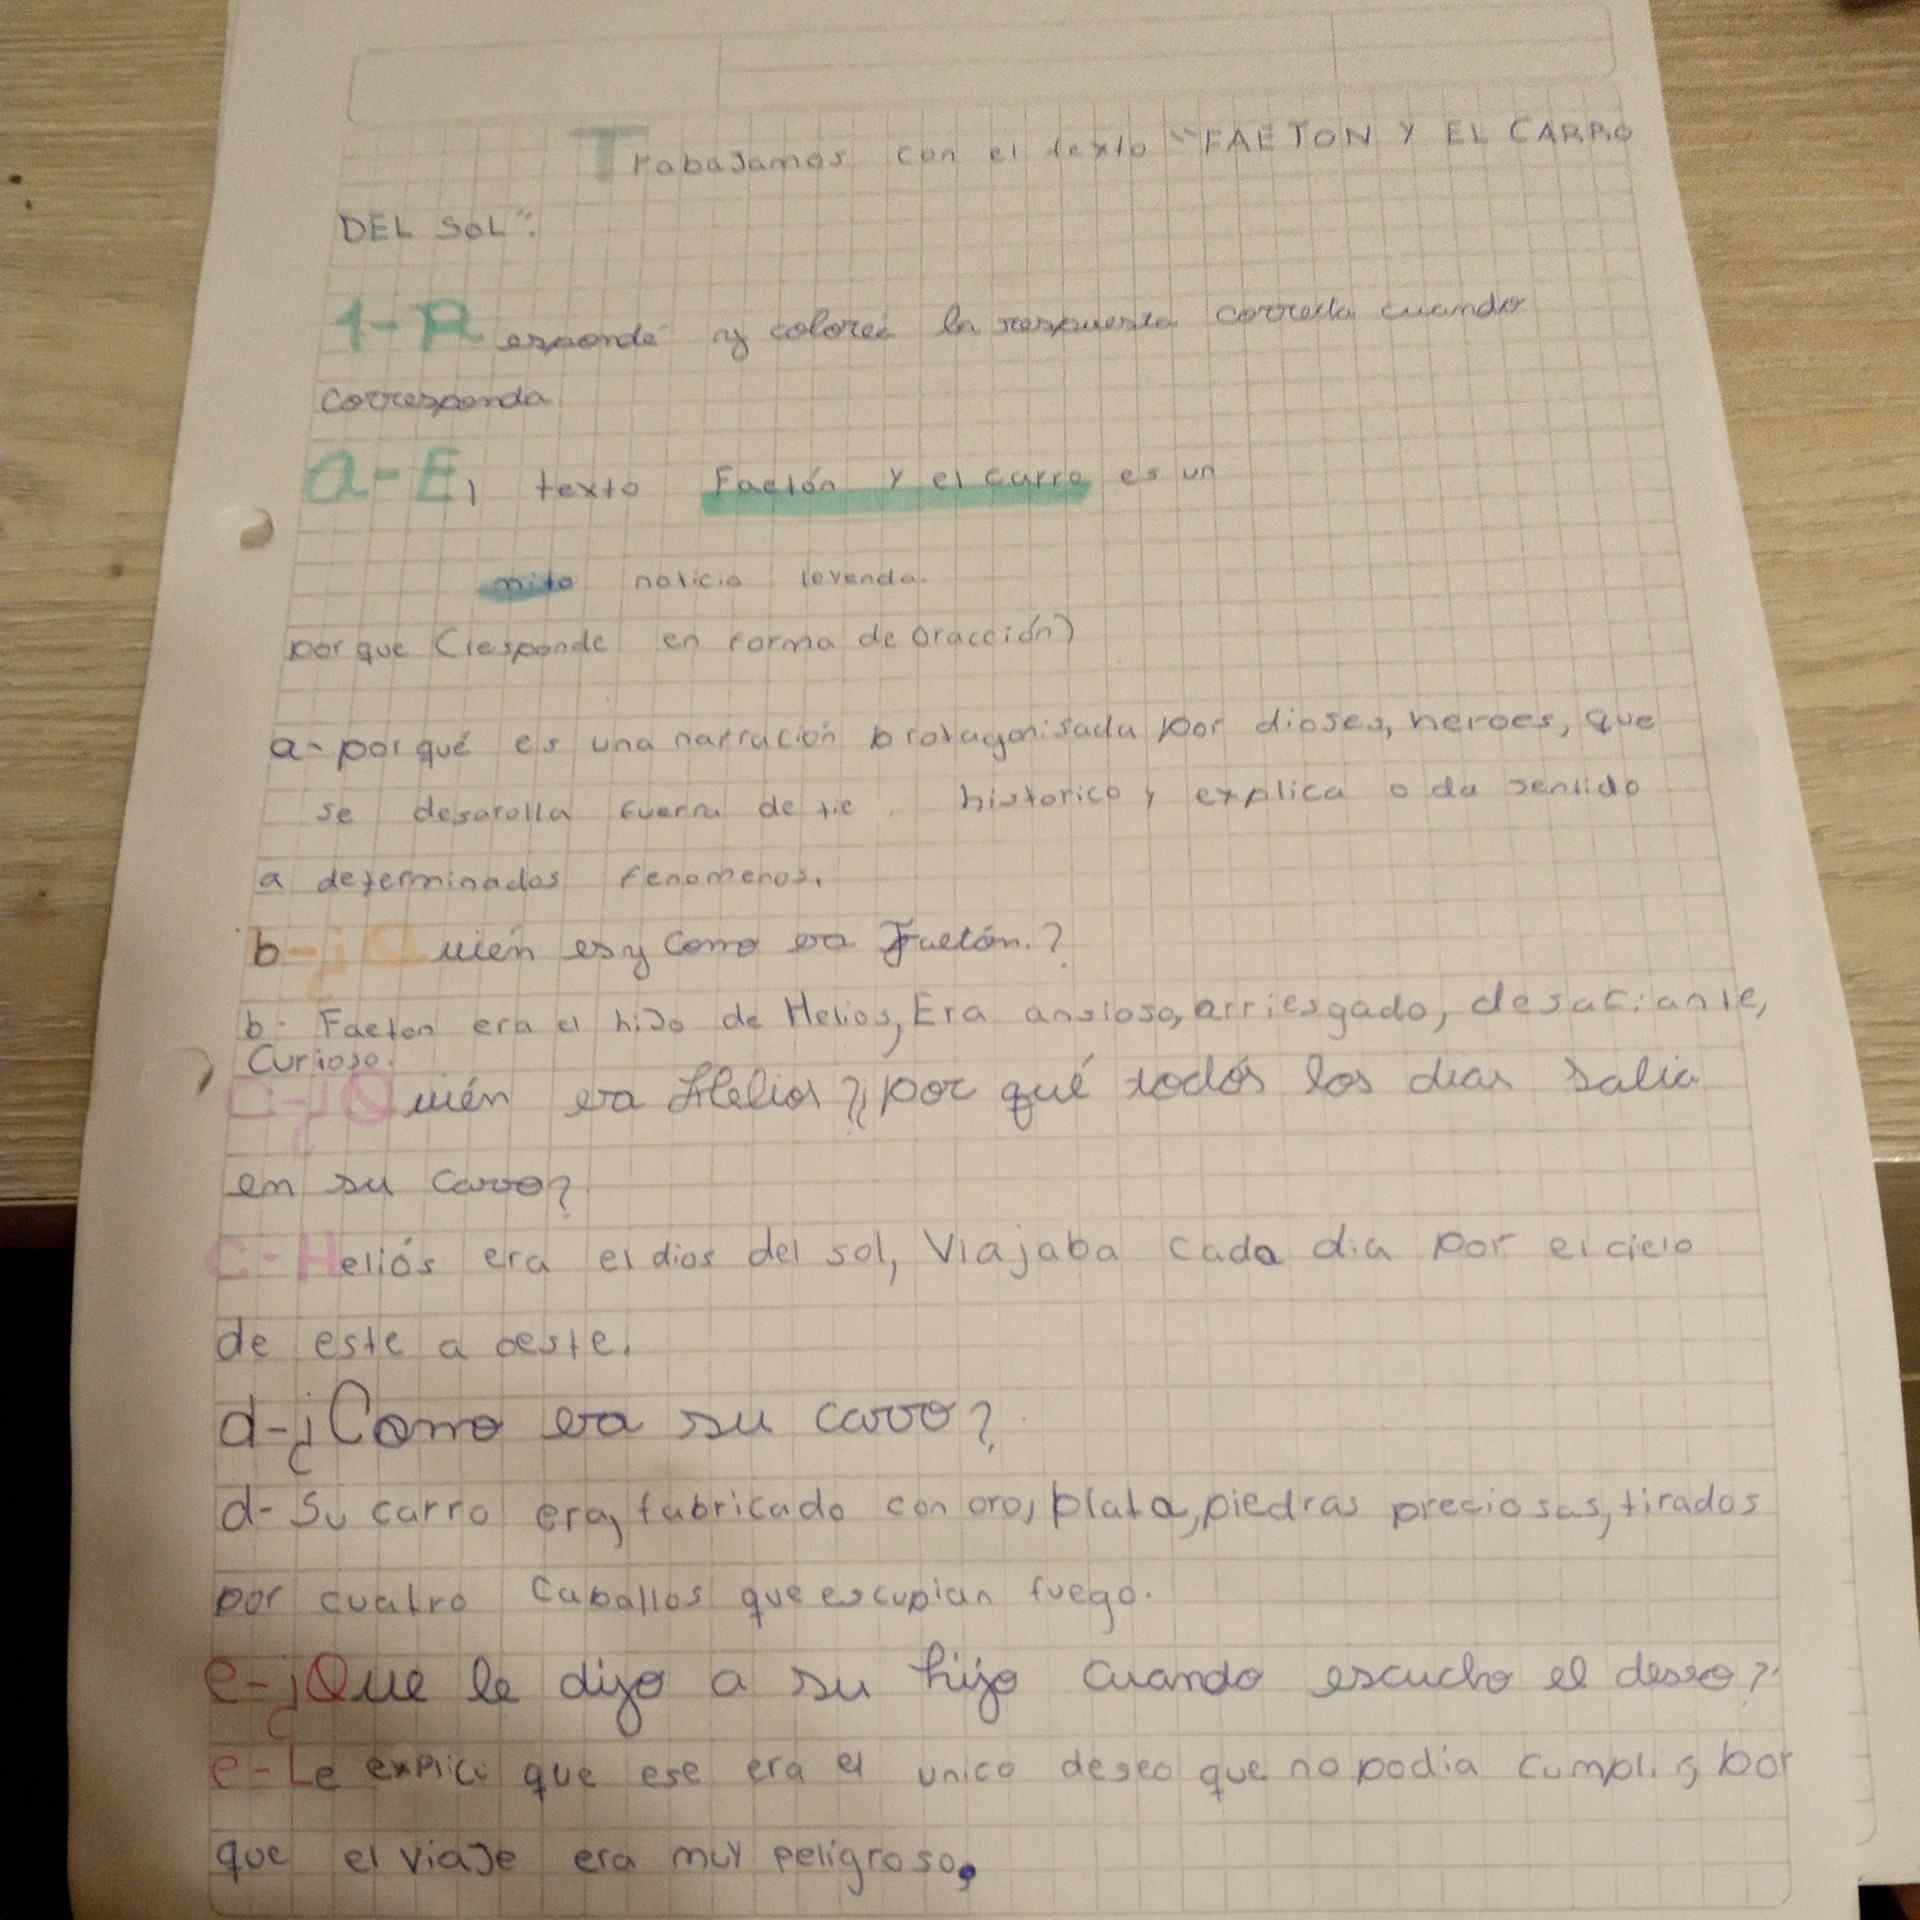 Trabajamos con el texto "FAETON Y EL CARRO
DEL SOL":
1-Respondé y coloreá la respuesta correcta cuando
corresponda
a-El texto Faetón y el carro es un
mito noticia leyenda.
por que (responde en forma de oracción)
a-porqué es una narración brotagonisada por dioses, heroes, que
se desarolla fuerra de tie historico y explica o da sentido
a determinados fenomenos.
b-¿Quién es y como era Faetón.?
b- Faeton era el hijo de Helios, Era ansioso, arriesgado, desafiante,
Curioso.
c-¿Quién era Helios?¿por qué todós los dias salia
en su carro?
c-Heliós era el dios del sol, Viajaba cada dia por el cielo
de este a oeste.
d-¿Como era su carro?
d- Su carro era, fabricado con oro, plata, piedras preciosas, tirados
por cuatro Caballos que escupian fuego.
e-¿Que le dijo a su hijo cuando escucho el deseo?
e-Le explico que ese era el unico deseo que no podia cumplir, bor
que el viaje era muy peligroso.